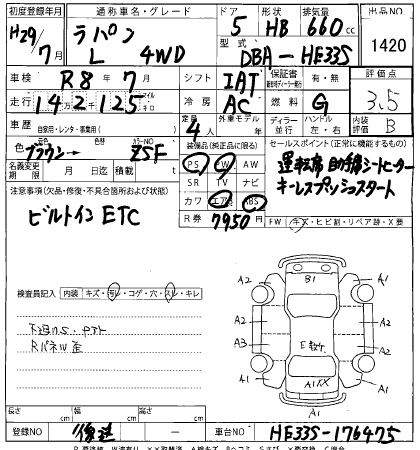 初度登録年月 通称車名・グレード ドア 形状 排気量 出品NO
H29/7月 ラパン L 4WD 5 HB 660cc 1420
型式 DBA-HE33S
車検 R8年7月 シフト IAT 保証書 有・無 評価点
走行 142,125 冷房 AC 燃料 G 3.5
車歴 自家用・レンタ・事業用( ) 定員 4人 外車モデル年 ディーラー 並行 ハンドル 左・右 内装評価 B
色 ブラウン カラーNO ZSF 装備品(純正品に限る) セールスポイント(正常に機能するもの)
名義変更期限 月 日 積載量 t PS PW AW 運転席助手席シートヒーター
注意事項(欠品・修復・不具合箇所および状態) SR TV ナビ キーレスプッシュスタート
ビルトインETC カワ エアB ABS
R券 7950円 FW キズ・ヒビ割・リペア跡・X要
検査員記入 内装 キズ・汚レ・コゲ・穴・スレ・キレ
Rパネル歪
B1
A2 A1
A2 A2
A3 A2
A1 A1
A1
長さ cm 幅 cm 高さ cm
登録NO 後送 車台NO HE33S-176475